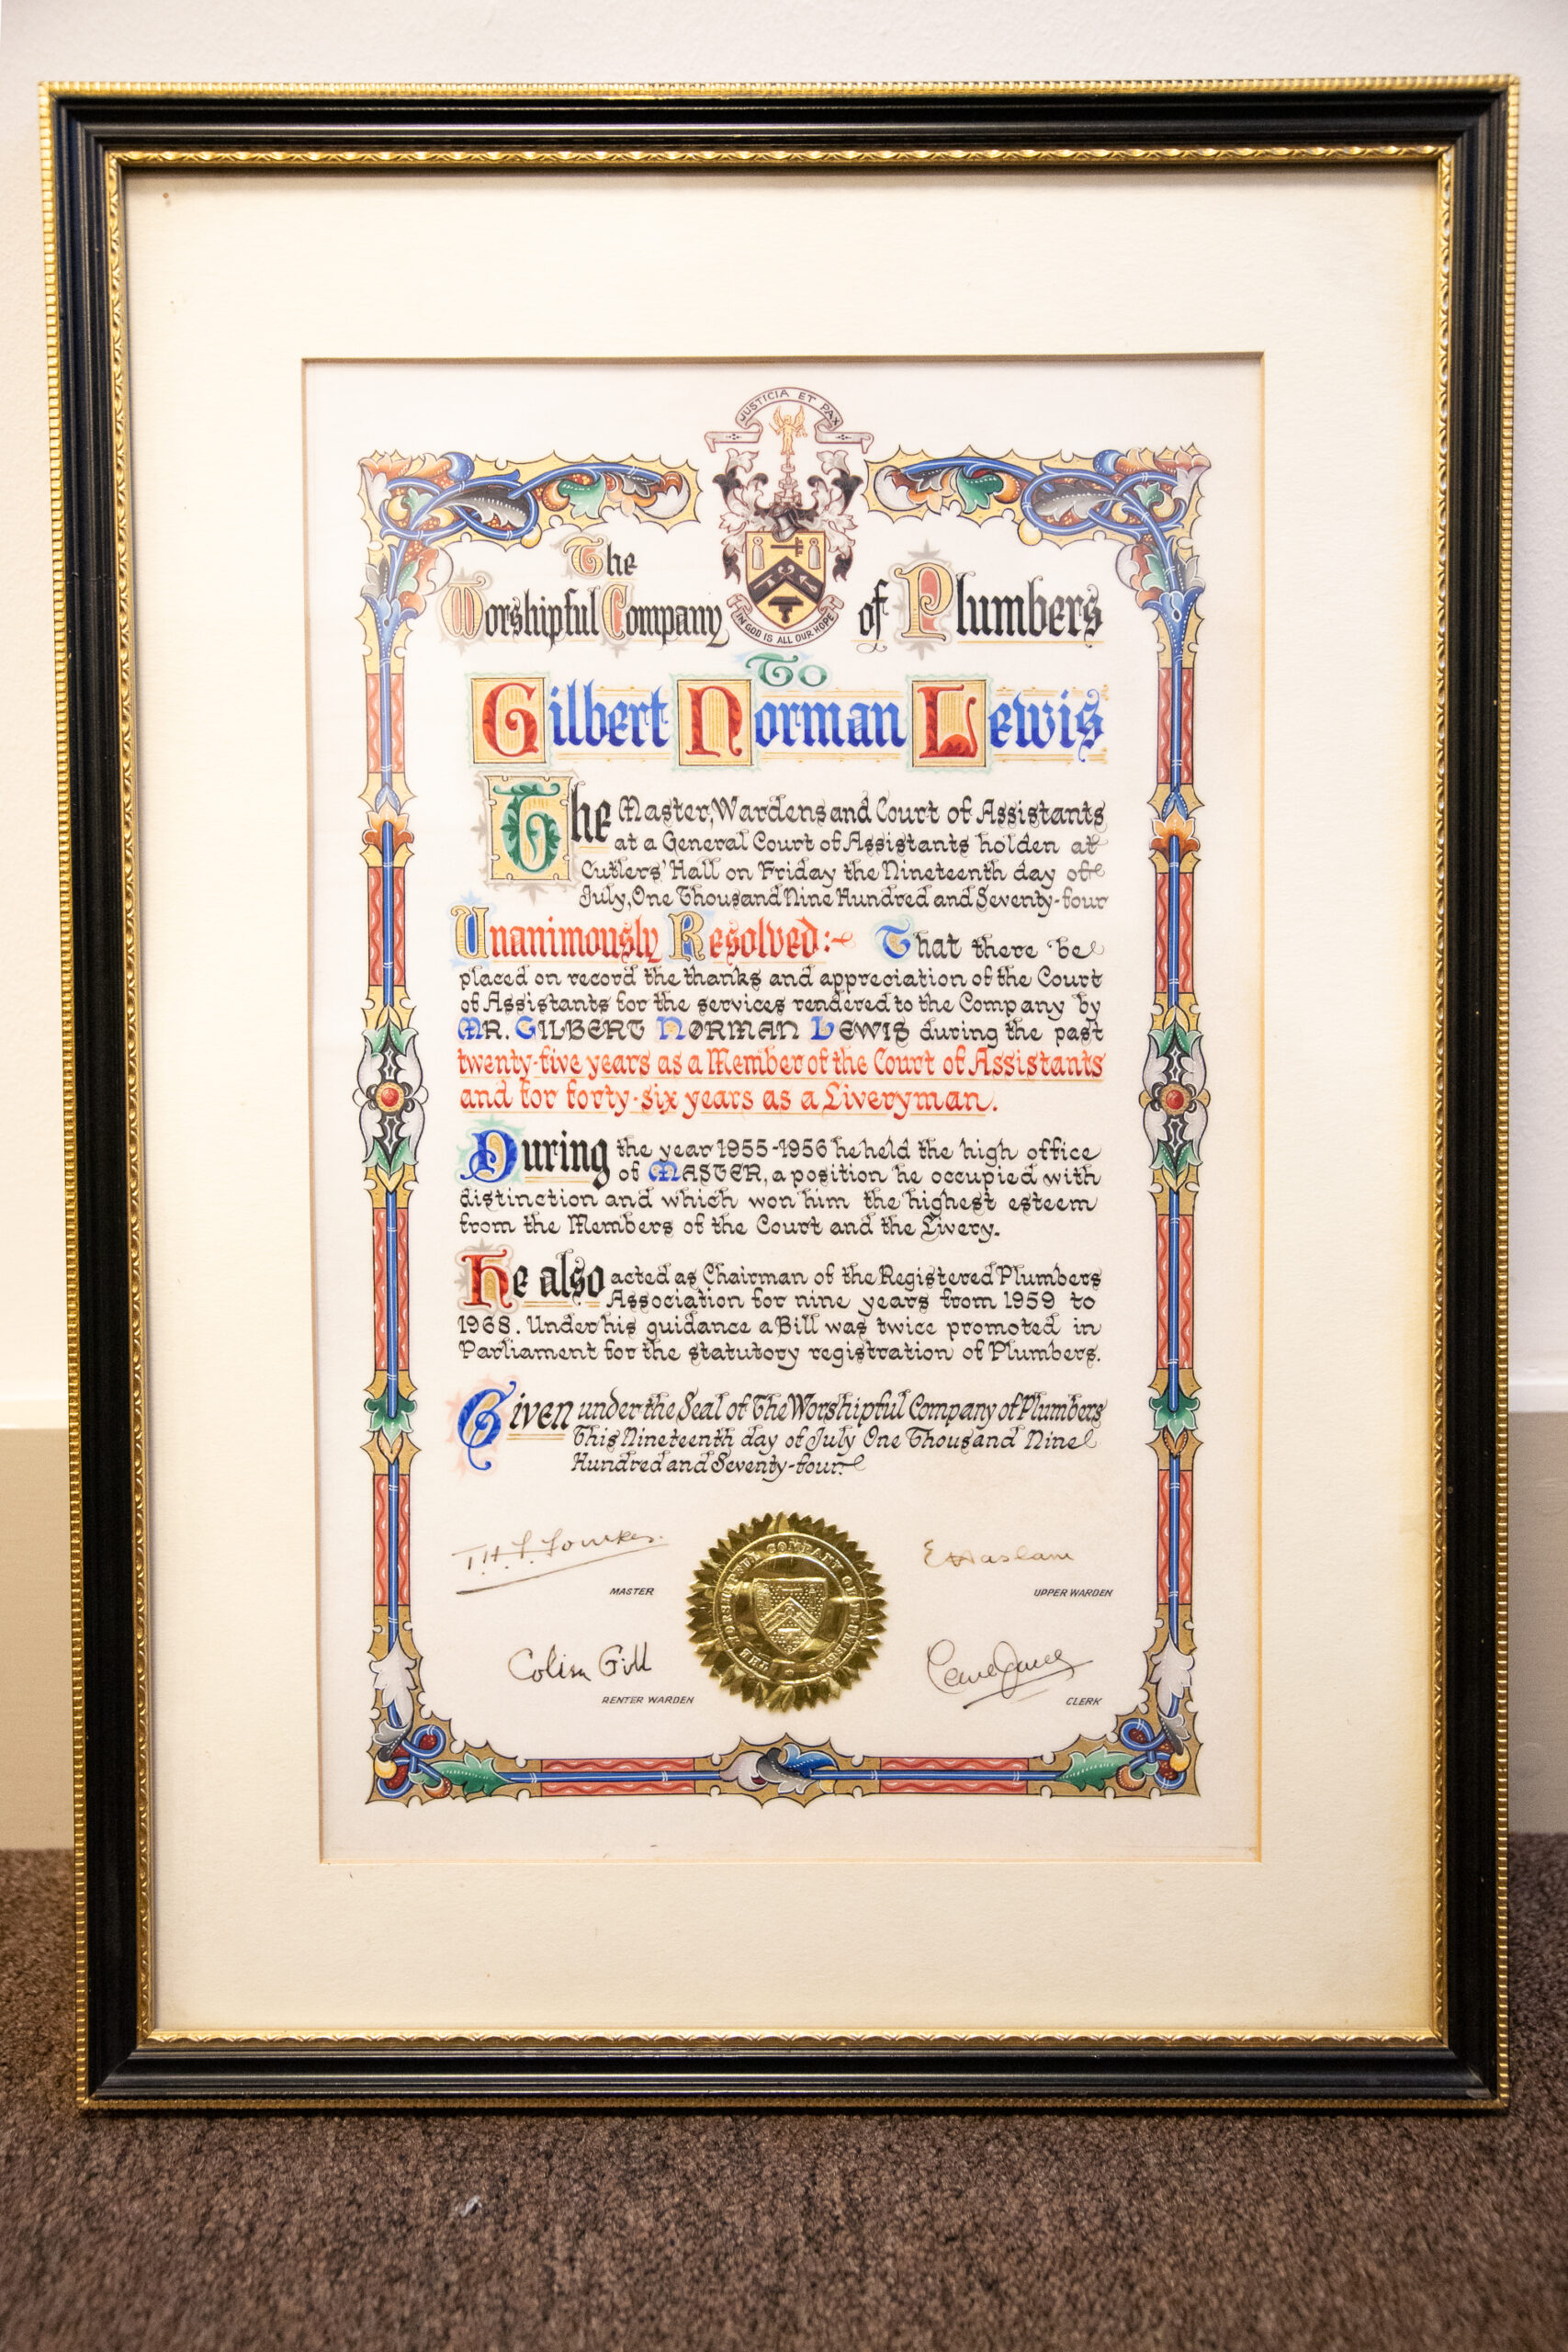 JUSTICIA ET PAX
The
Worshipful Company of Plumbers
IN GOD IS ALL OUR HOPE
To
Gilbert Norman Lewis
The Master, Wardens and Court of Assistants
at a General Court of Assistants holden at
Cutlers' Hall on Friday the Nineteenth day of
July, One Thousand Nine Hundred and Seventy-four
Unanimously Resolved:- That there be
placed on record the thanks and appreciation of the Court
of Assistants for the services rendered to the Company by
MR. GILBERT NORMAN LEWIS during the past
twenty-five years as a Member of the Court of Assistants
and for forty-six years as a Liveryman.
During the year 1955-1956 he held the high office
of MASTER, a position he occupied with
distinction and which won him the highest esteem
from the Members of the Court and the Livery.
He also acted as Chairman of the Registered Plumbers
Association for nine years from 1959 to
1968. Under his guidance a Bill was twice promoted in
Parliament for the statutory registration of Plumbers.
Given under the Seal of The Worshipful Company of Plumbers
This Nineteenth day of July One Thousand Nine
Hundred and Seventy-four
THE WORSHIPFUL COMPANY OF PLUMBERS
E Haslam
MASTER
UPPER WARDEN
Colin Gill
RENTER WARDEN
CLERK